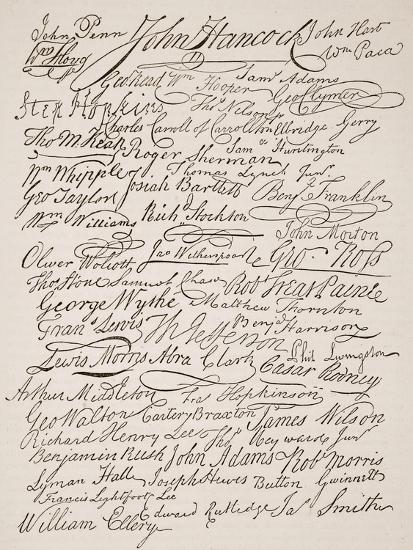 John Penn John Hancock John Hart
Wm Floyd Wm Paca
Geo Read Wm Hooper Saml Adams
Step Hopkins Thos Nelson jr Geo Clymer
Charles Carroll of Carrollton Elbridge Gerry
Tho M. Kean Roger Sherman Saml Huntington
Wm Whipple Thomas Lynch Junr
Josiah Bartlett Benj Franklin
Geo Taylor
Wm Williams Richd Stockton John Morton
Oliver Wolcott Jno Witherspoon Geo. Ross
Thos Stone Samuel Chase Robt Treat Paine
George Wythe Matthew Thornton
Frans Lewis Th Jefferson Benja Harrison
Lewis Morris Abra Clark Phil Livingston
Caesar Rodney
Arthur Middleton Fra Hopkinson
Geo Walton Carter Braxton James Wilson
Richard Henry Lee Thos Heywardd Junr
Benjamin Rush John Adams Robt Morris
Lyman Hall Joseph Hewes Button Gwinnett
Francis Lightfoot Lee
William Ellery Edward Rutledge Jas Smith